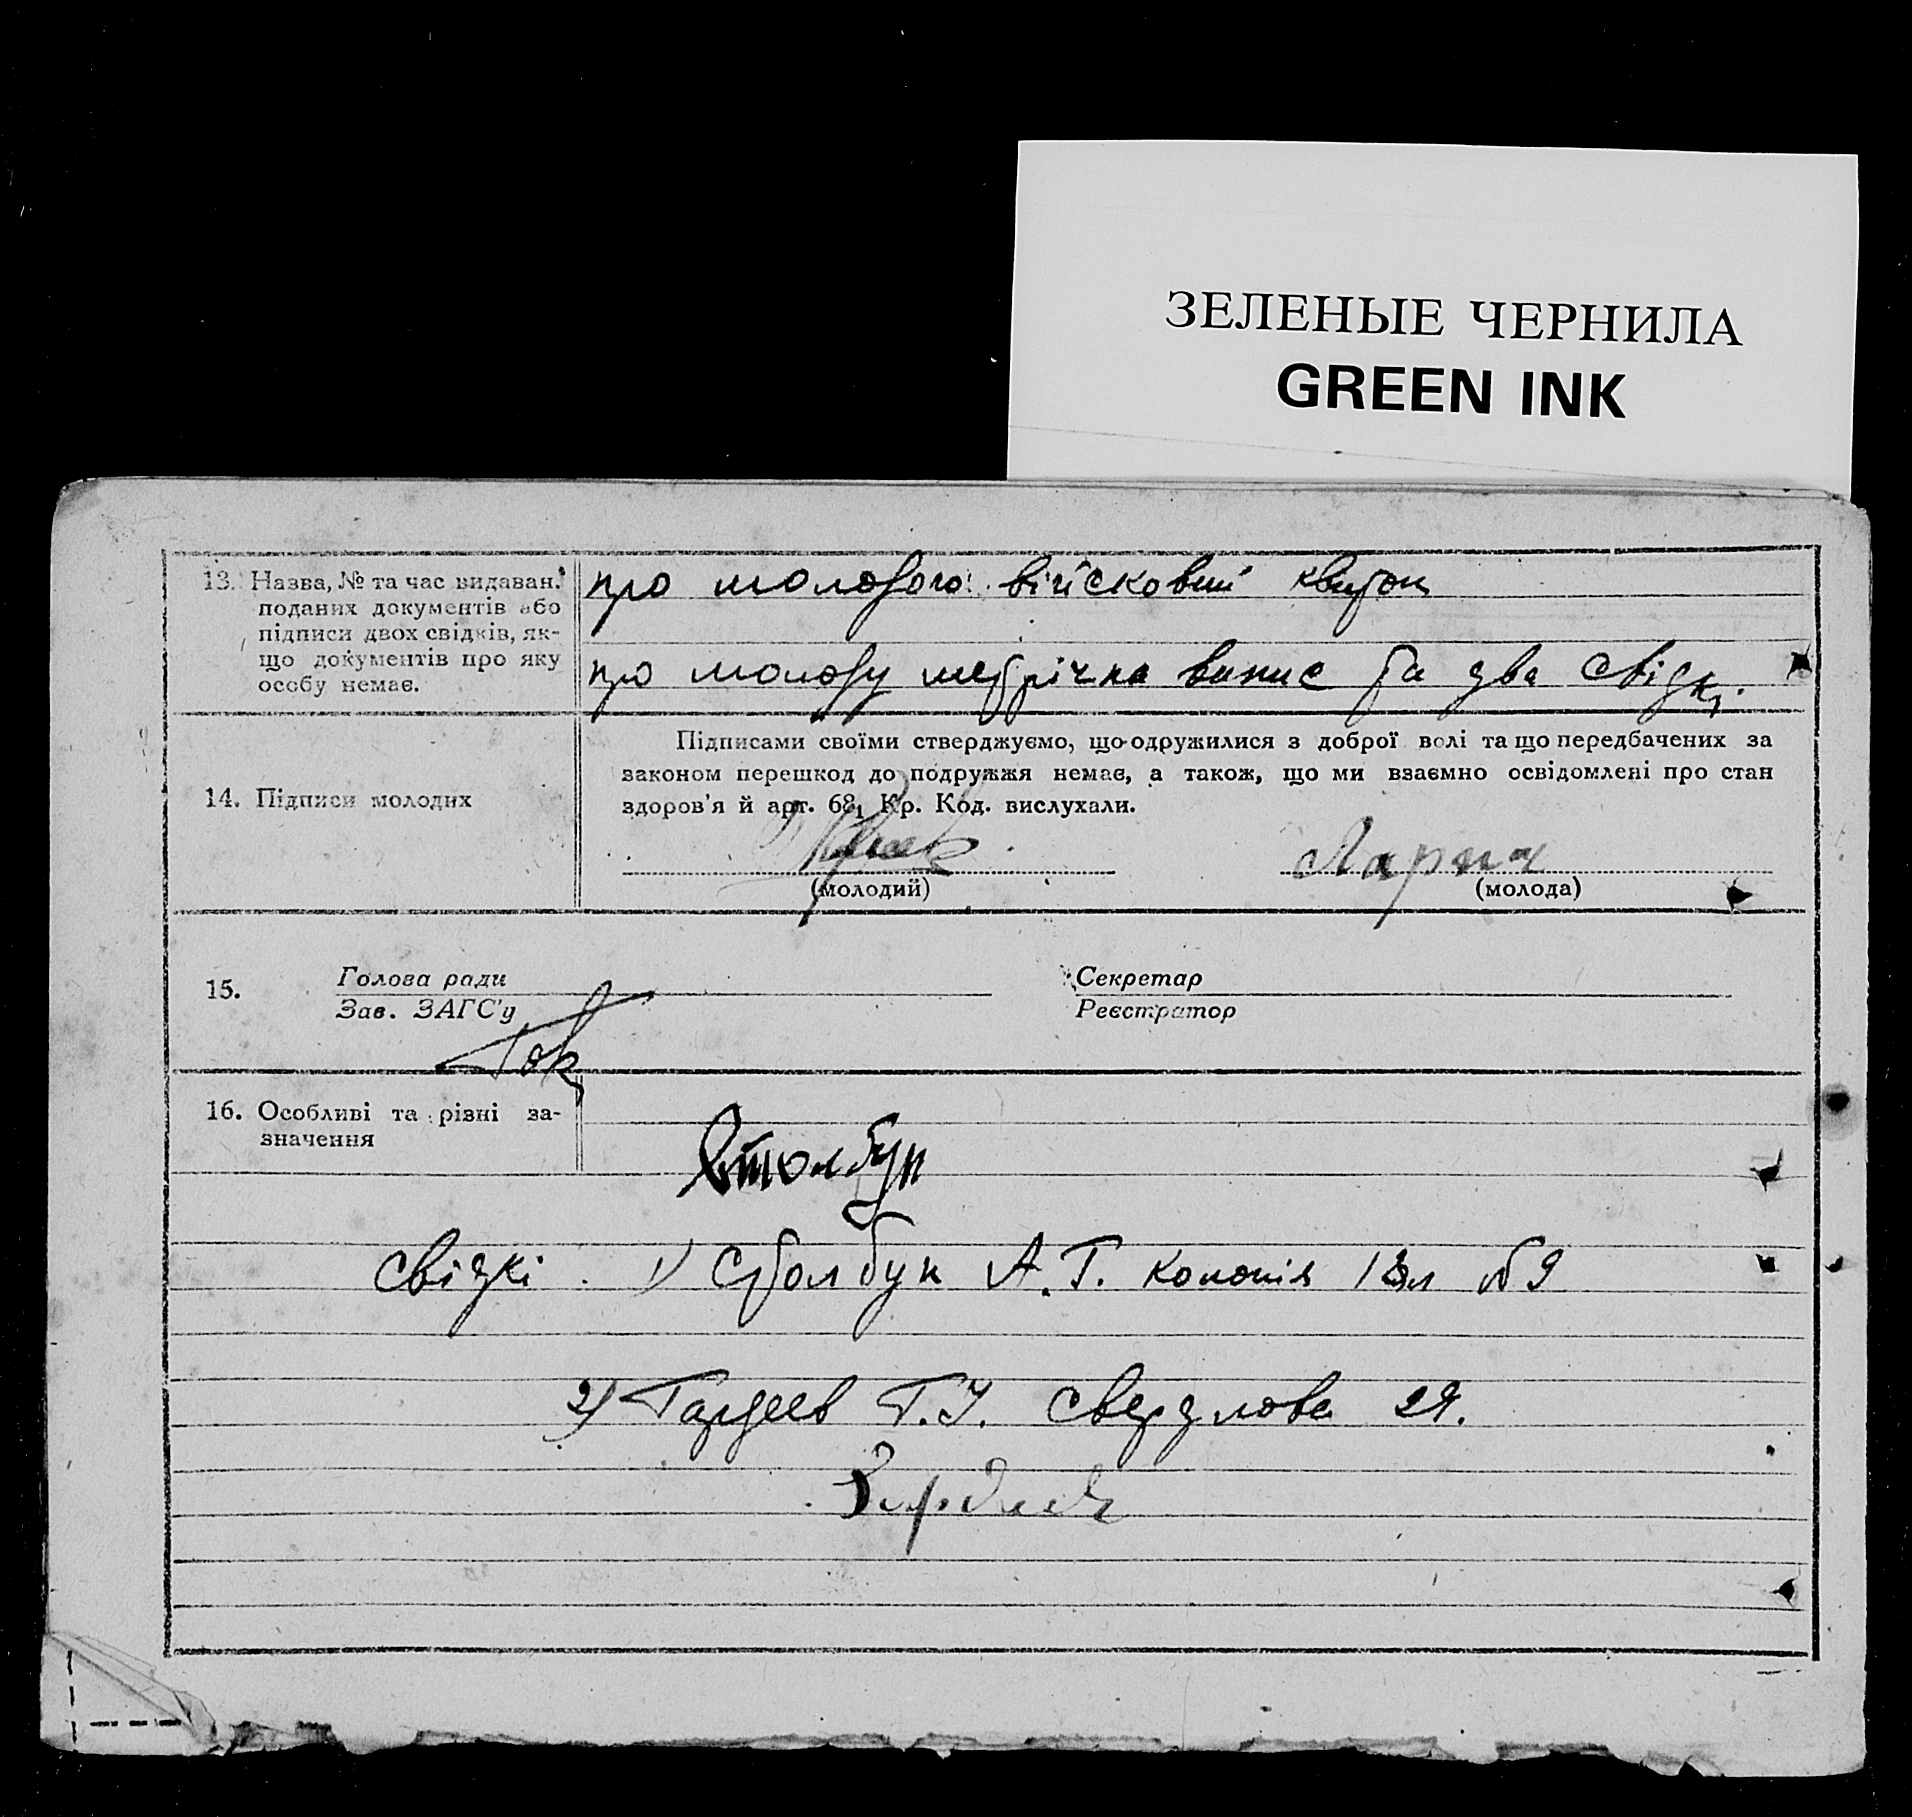 ЗЕЛЕНЫЕ ЧЕРНИЛА
GREEN INK
13. Назва, № та час видаван.
поданих документів або
підписи двох свідків, як-
що документів про яку
особу немає.
про молодого військовий квиток
про молоду метрічна випис та два свідкі.
14. Підписи молодих
Підписами своїми стверджуємо, що одружилися з доброї волі та що передбачених за
законом перешкод до подружжя немає, а також, що ми взаємно освідомлені про стан
здоров'я й арт. 68₁ Кр. Код. вислухали.
Ларич
(молодий) (молода)
15. Голова ради Секретар
Зав. ЗАГС'у Реєстратор
16. Особливі та різні за-
значення
Столбун
свідкі 1) Столбун А. Г. колонія 13л №9
2) Гардеев Г. І. Свердлова 29.